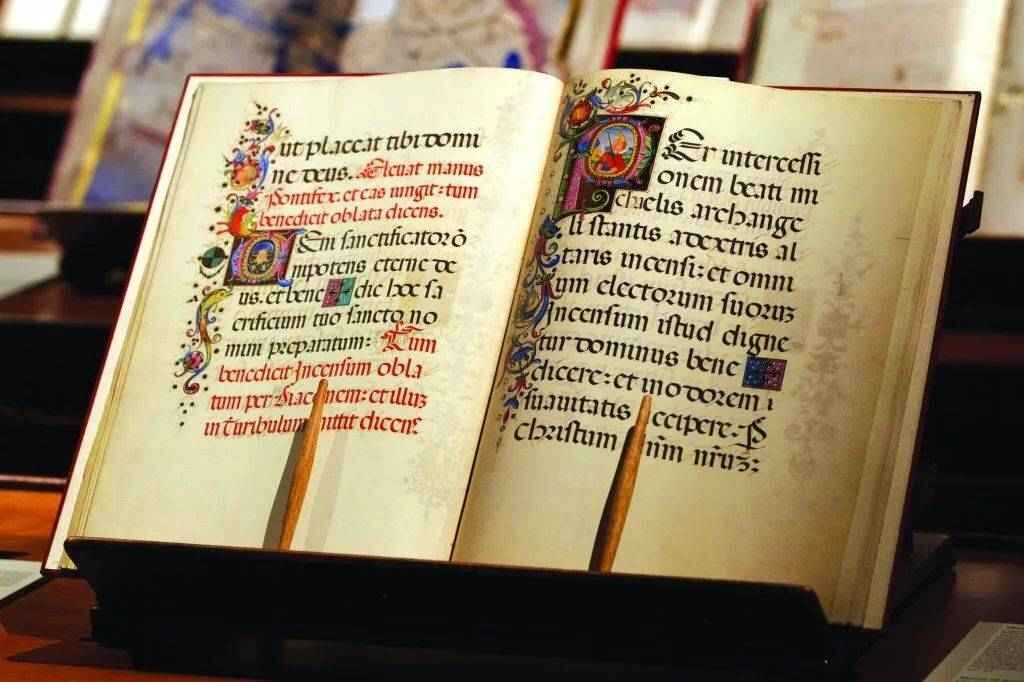 ut placeat tibi domi
ne deus. Eleuat manus
Pontifex. et eas iungit: tum
benedicit oblata dicens.
Veni sanctificator õ
nipotens eterne de
us. et bene dic hoc sa
crificium tuo sancto no
mini preparatum: Tum
benedicit Incensum obla
tum per Diaconem: et illuz
in Turibulum mittit dicens.
Per intercessi
onem beati mi
chaelis archange
li stantis a dextris al
taris incensi: et omni
um electorum suoruz
Incensum istud digne
tur dominus bene
dicere: et in odorem
suauitatis accipere. P
christum nñm nr̃uz: